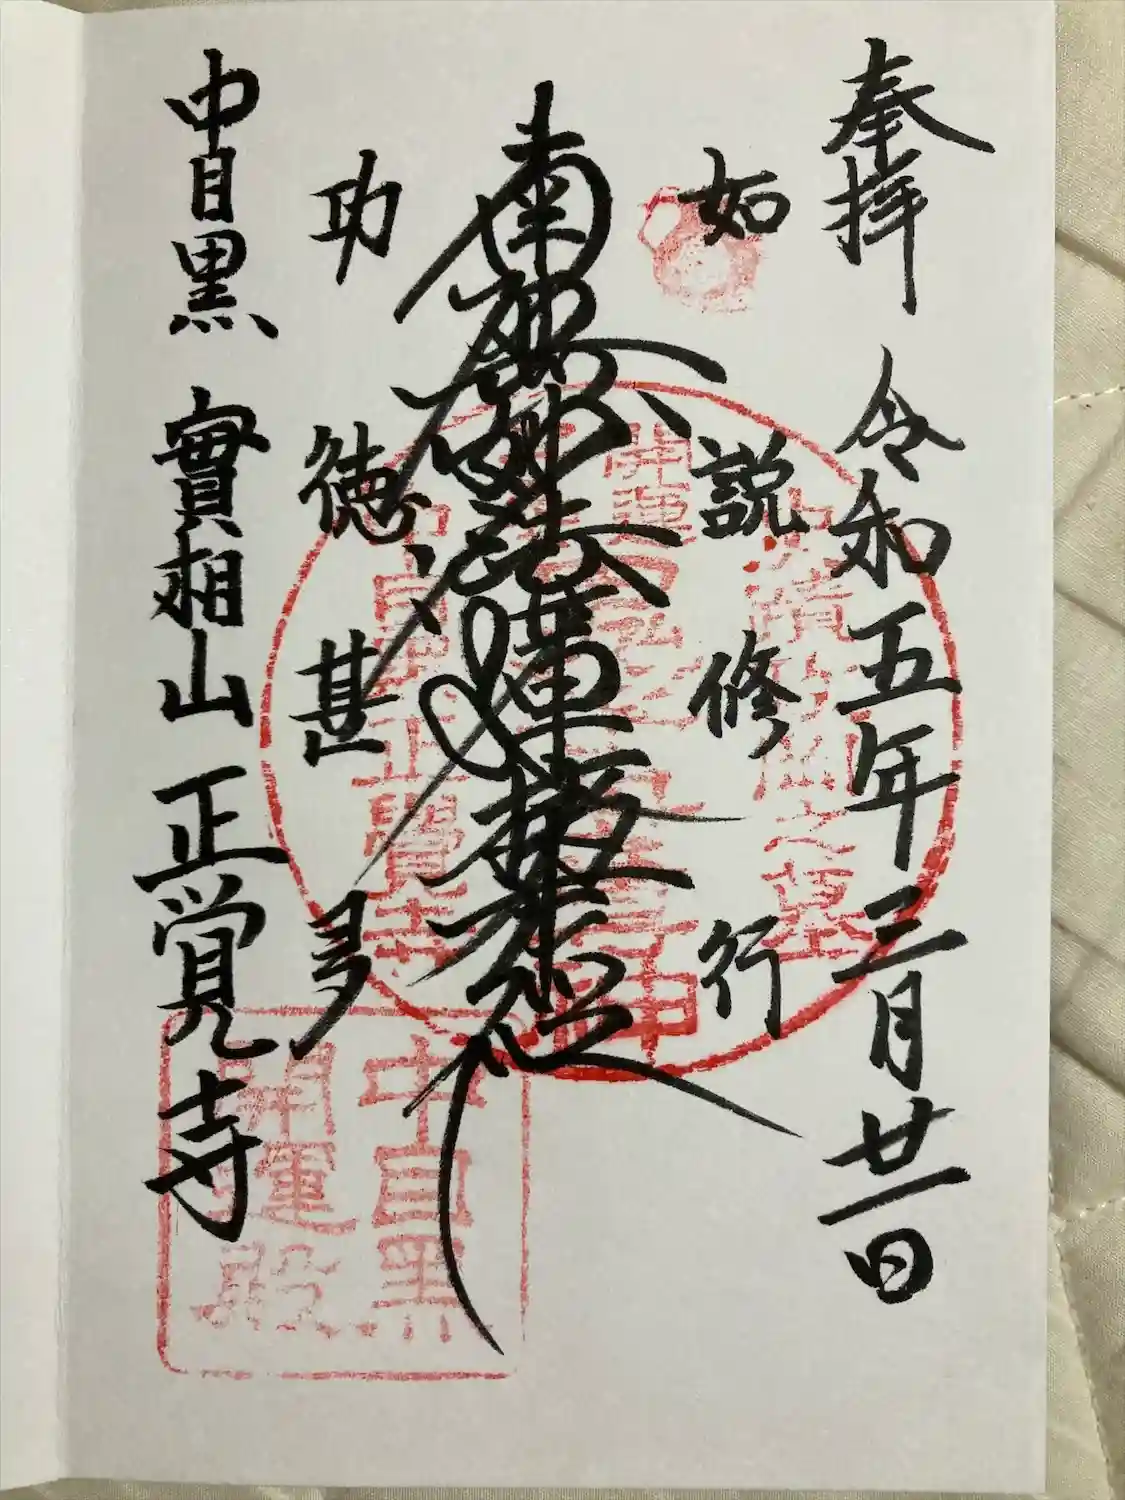 奉拝 令和五年三月廿一日
如説修行
南無妙法蓮華経
功徳甚多
中目黒 實相山 正覚寺
開運
之墓
正覺寺
中目黒
開運殿